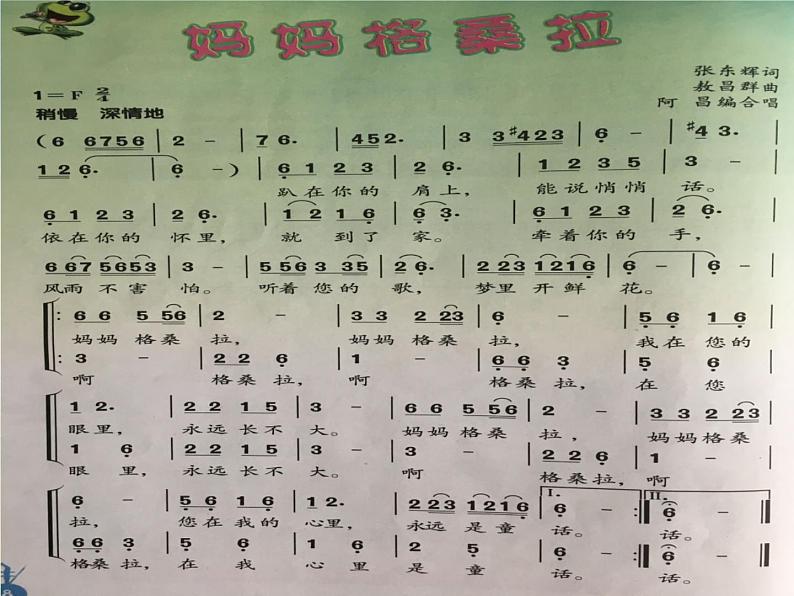 妈妈格桑拉
1=F 2/4
张东辉词
敖昌群曲
稍慢 深情地
阿 昌编合唱
(6 6756 | 2 – | 7 6. | 452. | 3 3#423 | 6 – | #4 3. |
1 2 6. | 6 –) | 6 1 2 3 | 2 6. | 1 2 3 5 | 3 – |
趴在你的 肩上， 能说悄悄 话。
6 1 2 3 | 2 6. | 1 2 1 6 | 6 3. | 6 1 2 3 | 2 6. |
依在你的 怀里， 就 到了 家。 牵着你的 手，
667 5653 | 3 – | 5 563 35 | 6. | 2 23 1216 | 6 – | 6 – |
风雨 不害 怕。 听着 您的 歌， 梦里 开鲜 花。
6 6 5 56 | 2 – | 3 3 2 23 | 6 – | 5 6 1 6 |
妈妈 格桑 拉， 妈妈 格桑 拉， 我在 您的
3 – | 2 2 6 | 1 – | 6 6 3 | 5 6 |
啊 格桑 拉， 啊 格桑 拉， 在 您
1 2. | 2 2 1 5 | 3 – | 6 6 5 56 | 2 – | 3 3 2 23 |
眼里， 永远长不 大。 妈妈 格桑 拉， 妈妈格桑
1 6 | 2 2 1 5 | 3 – | 3 – | 2 2 6 | 1 – |
眼 里， 永远长不 大。 啊 格桑拉， 啊
6 – | 5 5 1 6 | 1 2. | 223 1216 | I. 6 – :| II. 6 – ‖
拉， 您在我的 心里， 永远 是童 话。 话。
6 6 3 | 2 5 | 1 2 | 3 1 | 6 – :| 6 – ‖
格桑 拉， 在 我 心 里 是 童 话。 话。
8